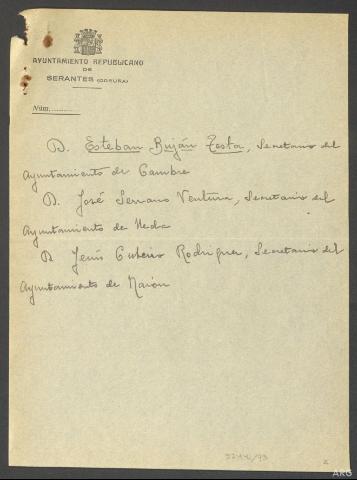 AYUNTAMIENTO REPUBLICANO
DE
SERANTES (CORUÑA)
Núm...........
D. Esteban Buján Testa, Secretario del
Ayuntamiento de Cambre
D. José Serrano Ventura, Secretario del
Ayuntamiento de Neda
D. Jesús Rodríguez, Secretario del
Ayuntamiento de Narón
ARG